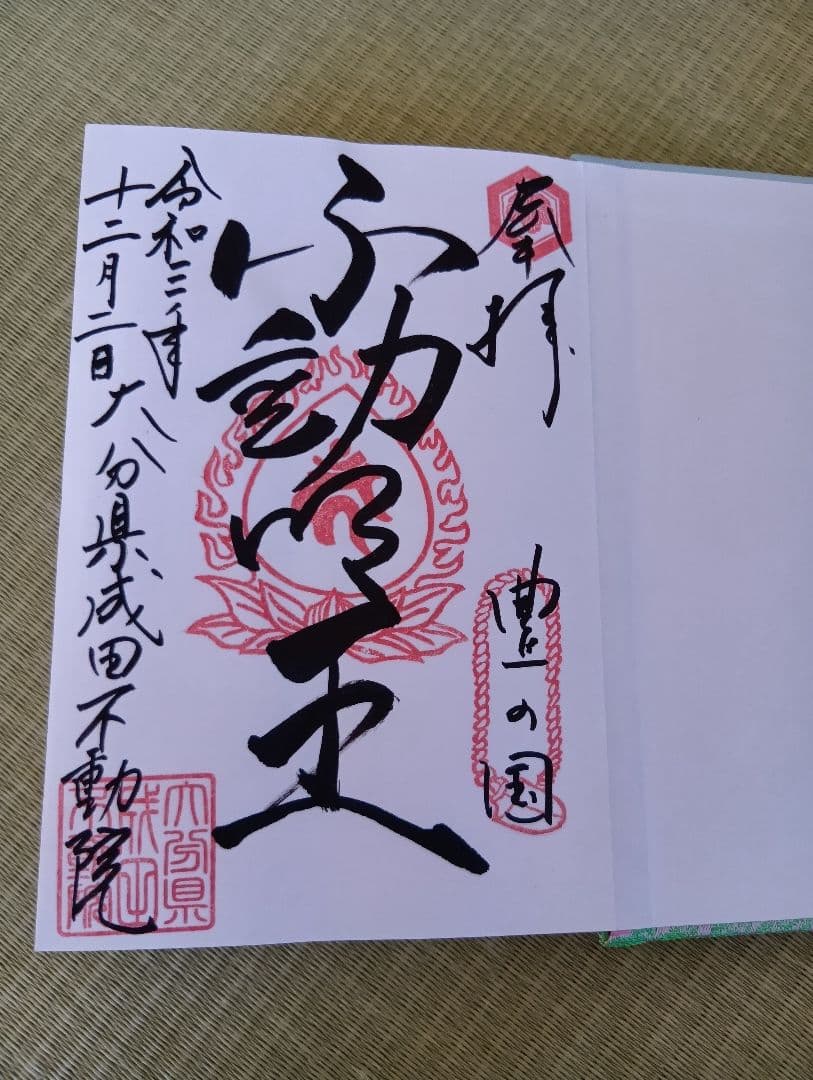 奉拝
豊の国
不動明王
令和三年
十二月二日 大分県成田不動院
大分県
成田
不動院